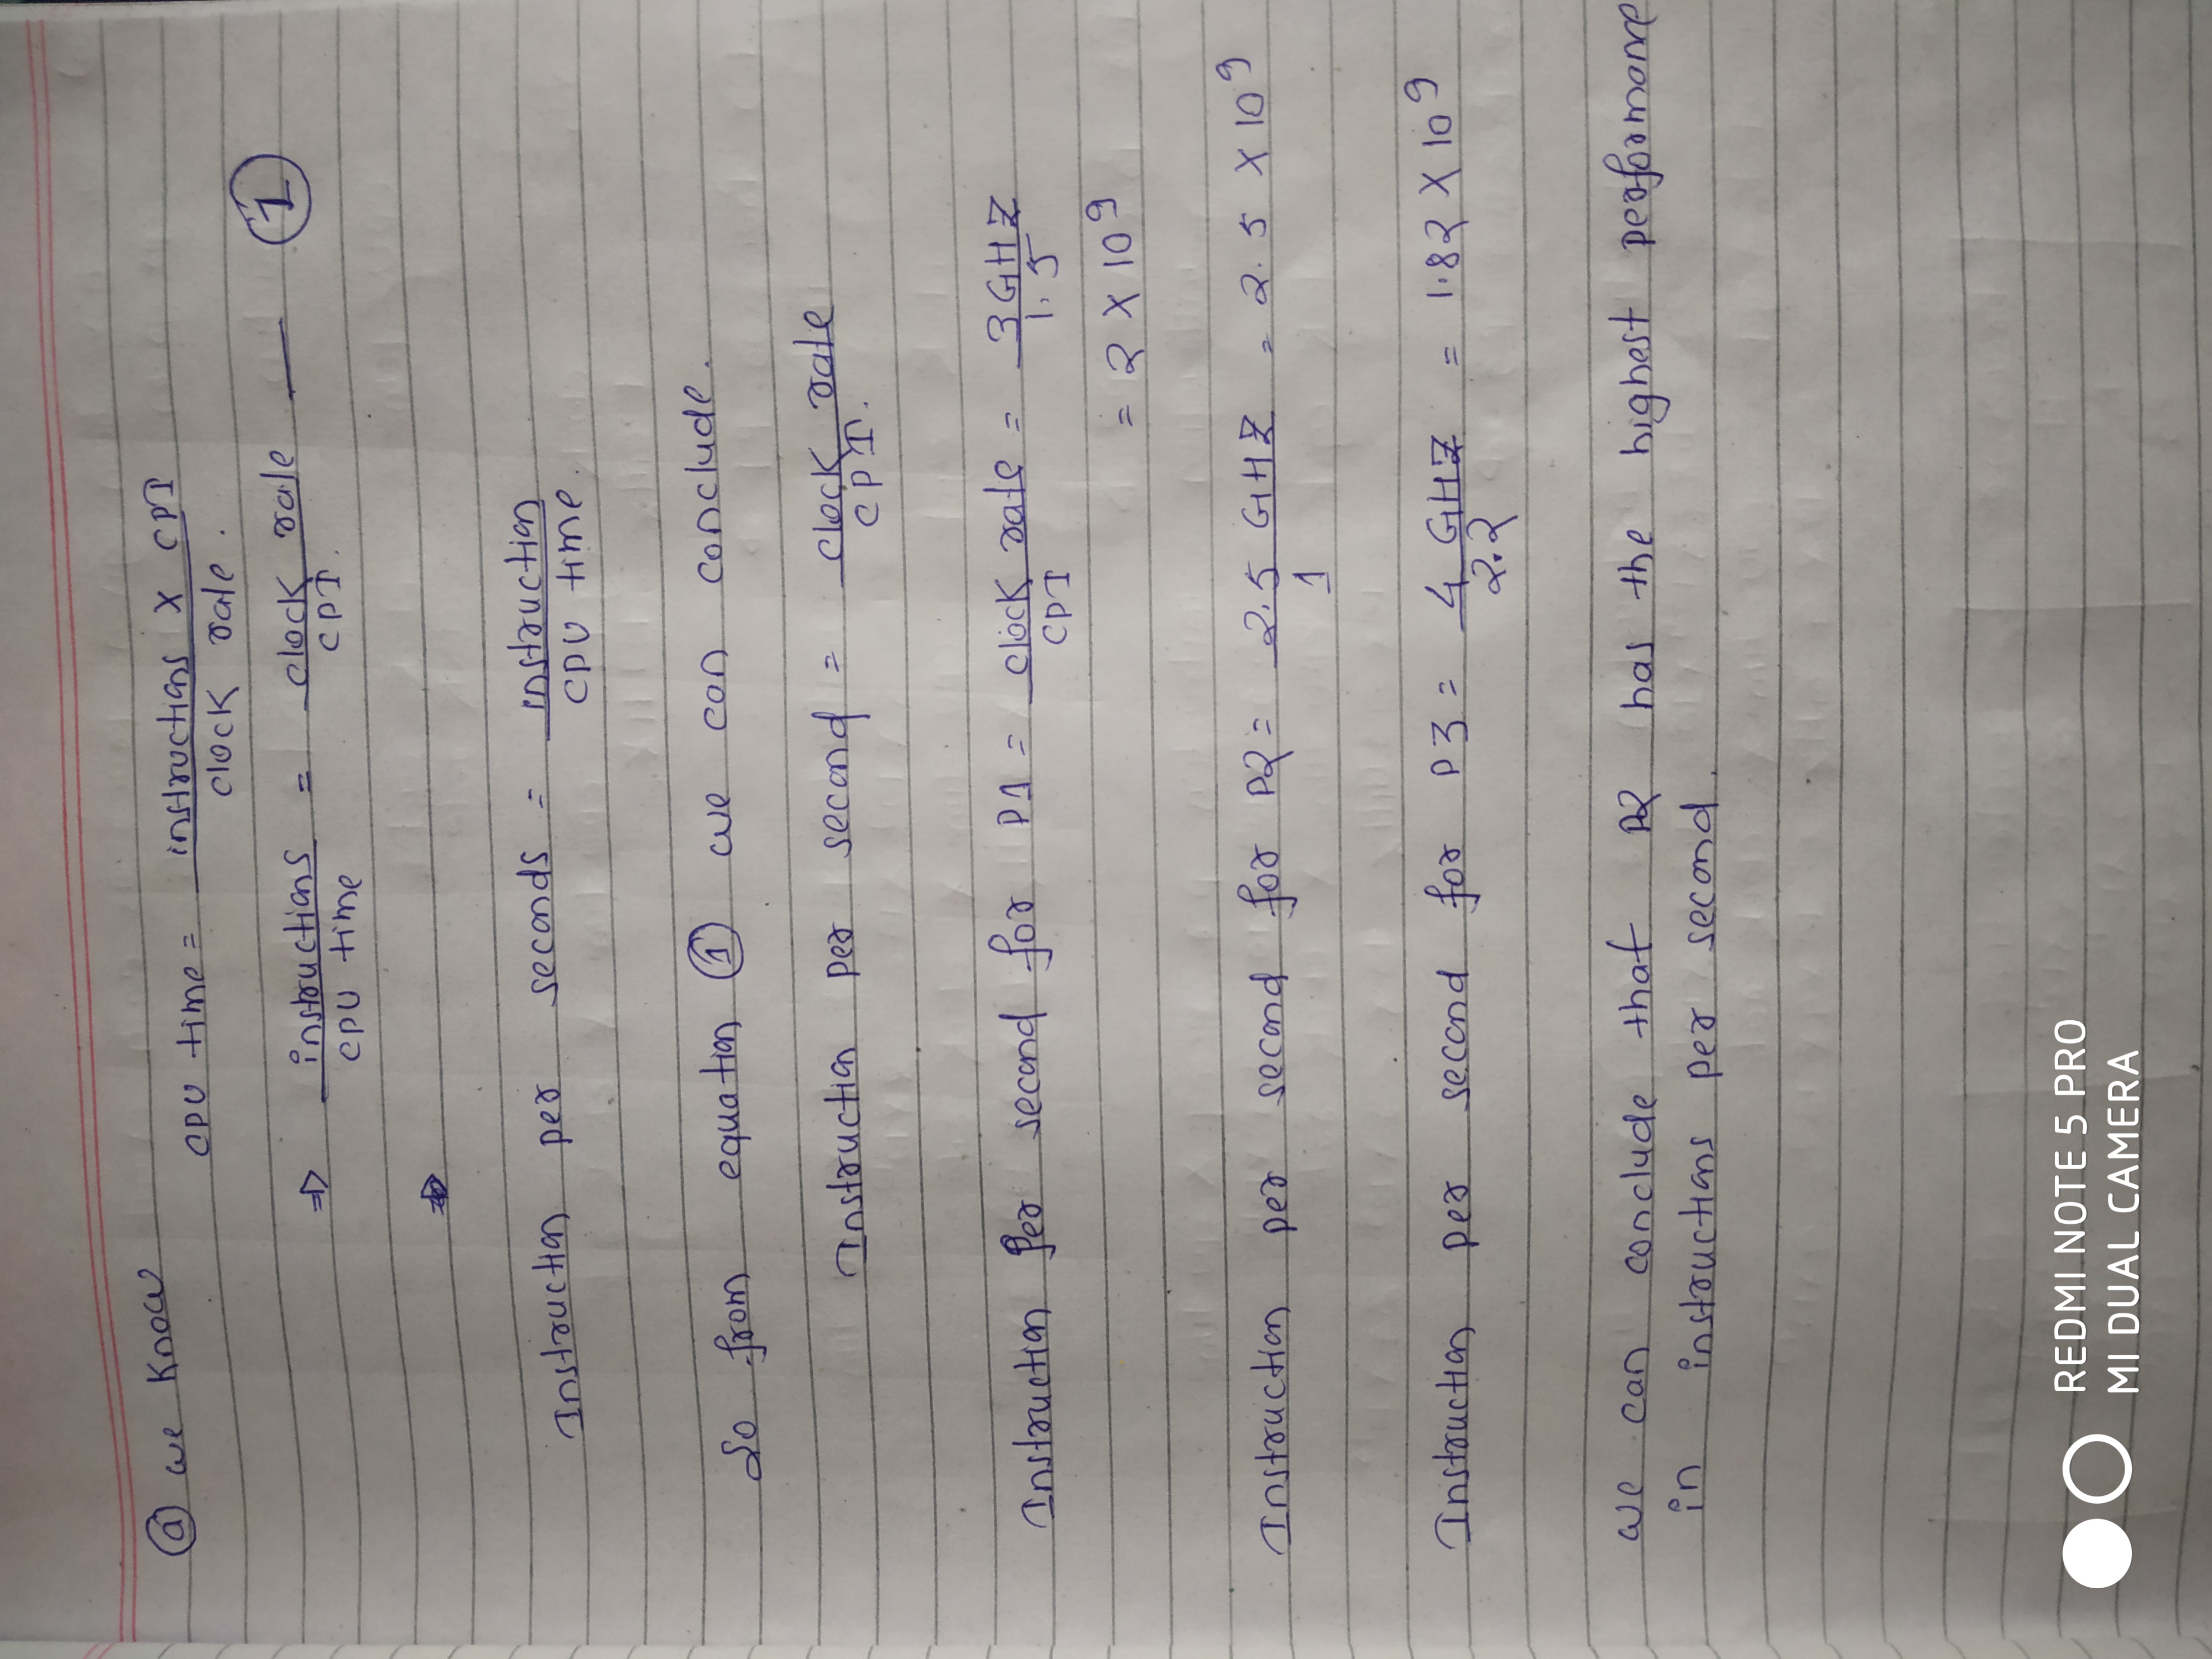 ⓐ we Know
CPU time = instructions x CPI
clock rate.
⇒ instructions = clock rate — ①
CPU time CPI.
⇒
Instruction per seconds = instruction
CPU time.
So from equation ① we can conclude.
Instruction per second = clock rate
CPI.
Instruction Per second for P1 = clock rate = 3 GHZ
CPI 1.5
= 2 X 10^9
Instruction per second for P2 = 2.5 GHZ = 2.5 X 10^9
1
Instruction per second for P3 = 4 GHZ = 1.82 X 10^9
2.2
we can conclude that P2 has the highest performane
in instructions per second.
REDMI NOTE 5 PRO
MI DUAL CAMERA